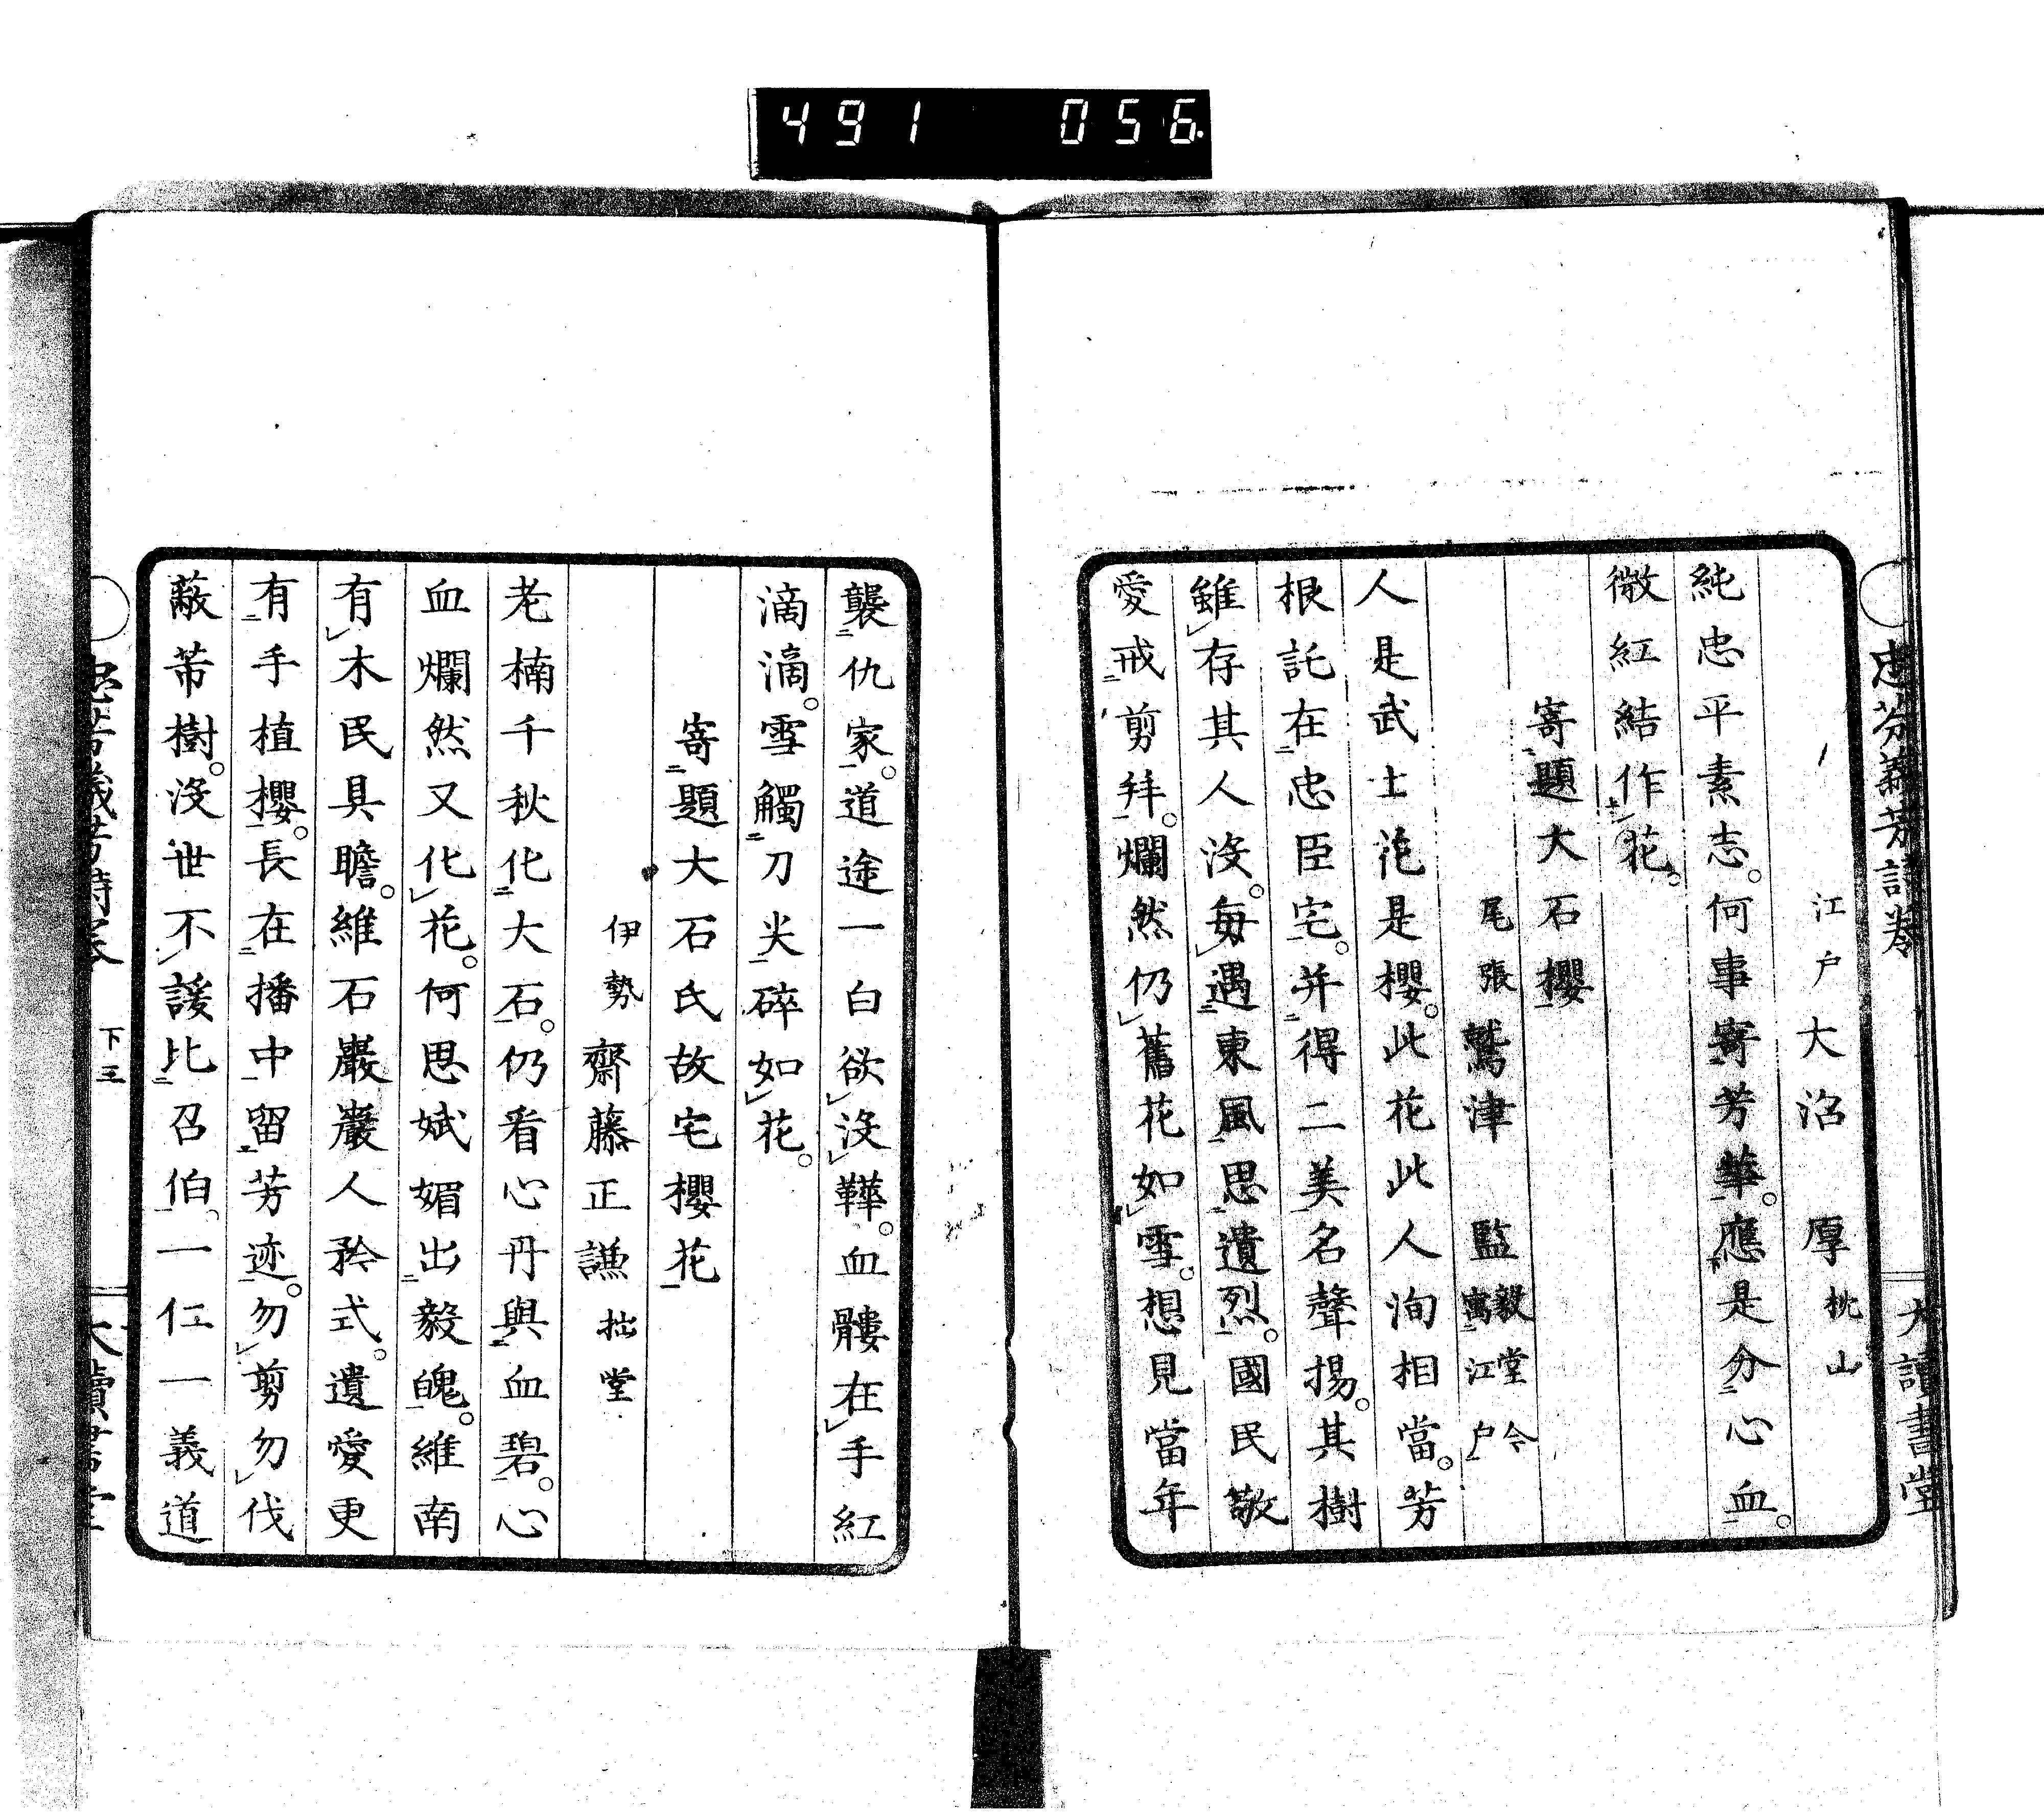 491 056
忠芬義芳詩卷
大讀書堂
江户大沼厚枕山
純忠平素志。何事寄芳華。應是分心血。
微紅結作花。
寄題大石櫻
尾張鷲津監毅堂今寓江户
人是武士花是櫻。此花此人洵相當。芳
根託在忠臣宅。并得二美名聲揚。其樹
雖存其人沒。每遇東風思遺烈。國民敬
愛戒剪拜。爛然仍舊花如雪。想見當年
襲仇家。道途一白欲沒鞾。血髏在手紅
滴滴。雪觸刀尖碎如花。
寄題大石氏故宅櫻花
伊勢齋藤正謙拙堂
老楠千秋化大石。仍看心丹與血碧。心
血爛然又化花。何思娬媚出毅魄。維南
有木民具瞻。維石巖巖人矜式。遺愛更
有手植櫻。長在播中留芳迹。勿剪勿伐
蔽芾樹。沒世不諼比召伯。一仁一義道
下三